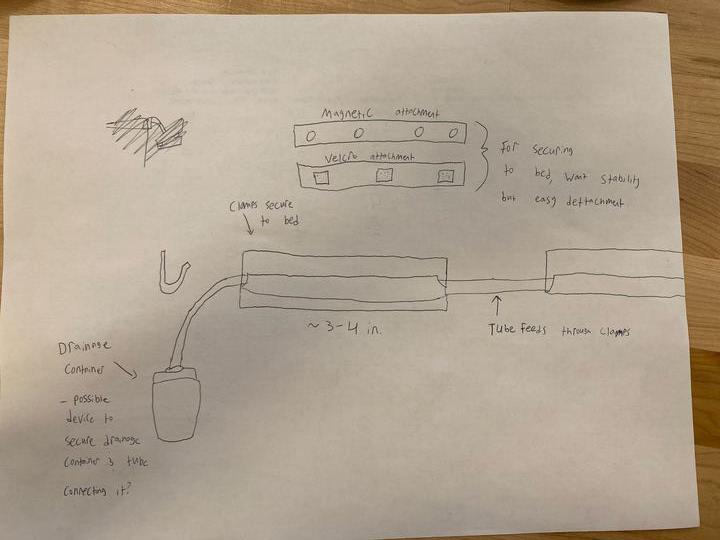 Magnetic attachment
Velcro attachment
For securing
to bed, want stability
but easy dettachment
Clamps secure
to bed
~ 3-4 in.
Tube feeds through clamps
Drainage
container
- possible
device to
secure drainage
container & tube
connecting it?